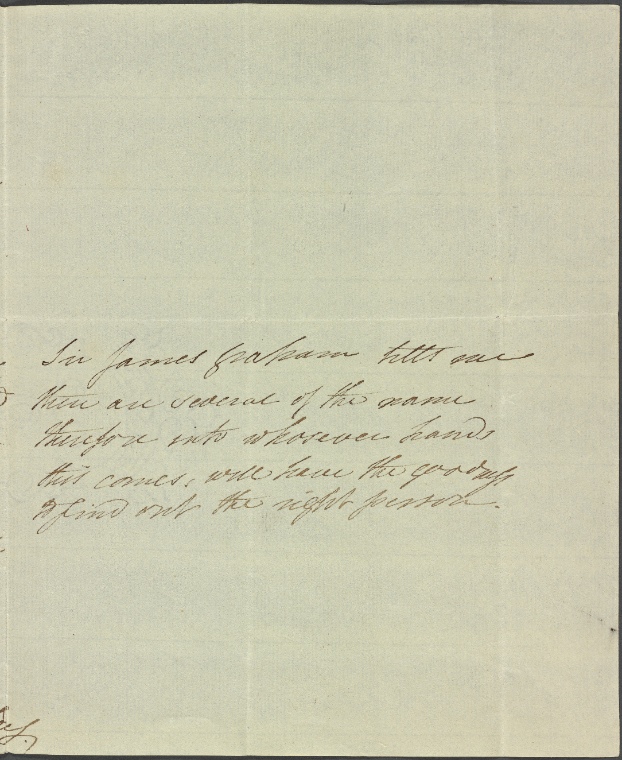 Sir James Graham tells me
there are several of the name
therefore into whosever hands
this comes, will have the goodness
to find out the right person.